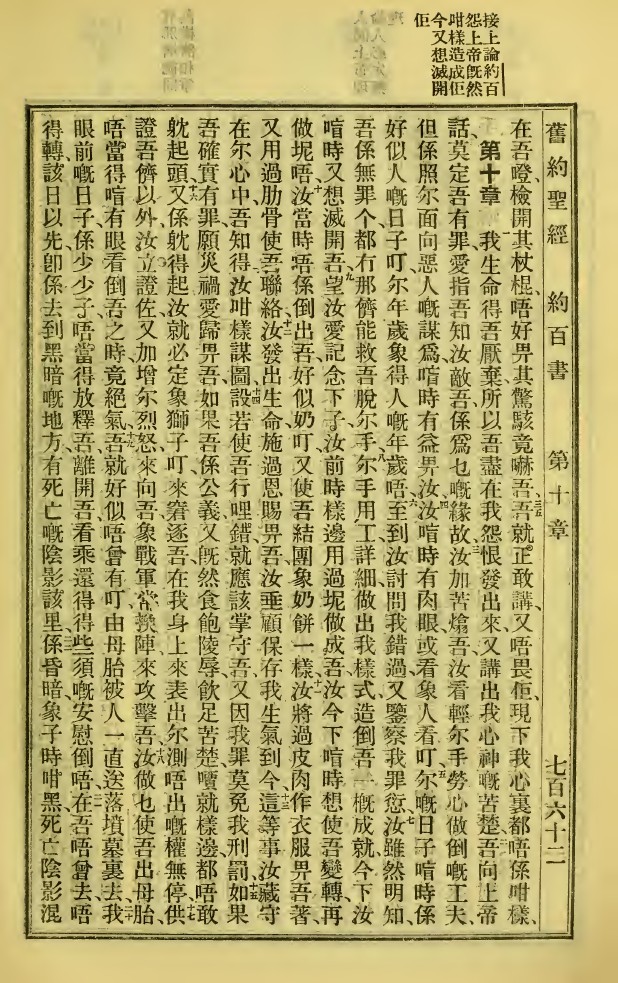 舊約聖經　約百書　第十章　七百六十二
接上論約百
怨上帝既然
咁樣造成佢
今又想滅開
佢
在吾噔檢開其杖棍、唔好畀其驚駭竟嚇吾、三五吾就正敢講、又唔畏佢、現下我心裏都唔係咁樣、
第十章　一我生命得吾厭棄、所以吾盡在我怨恨發出來、又講出我心神嘅苦楚、二吾向上帝
話、莫定吾有罪、愛指吾知汝敵吾係爲乜嘅緣故、三汝加苦燆吾、汝看輕尔手勞心做倒嘅工夫、
但係照尔面向惡人嘅謀爲、喑時有益畀汝、四汝喑時有肉眼、或看象人看叮、五尔嘅日子喑時係
好似人嘅日子叮、尔年歲象得人嘅年歲、六唔至到汝討問我錯過、又鑒察我罪愆、七汝雖然明知
吾係無罪个、都冇那儕能救吾脫尔手、八尔手用工詳細做出我樣式、造倒吾一概成就、今下汝
喑時又想滅開吾、九望汝愛記念下子、汝前時樣邊用過坭做成吾、汝今下喑時想使吾變轉再
做坭唔汝、十當時唔係倒出吾好似奶叮、又使吾結團象奶餅一樣、十一汝將過皮肉作衣服畀吾著、
又用過肋骨使吾聯絡、十二汝發出生命施過恩賜畀吾、汝垂顧保存我生氣到今、十三這等事汝藏守
在尔心中、吾知得汝咁樣謀圖設、十四若使吾行哩錯、就應該掌守吾、又因我罪莫免我刑罰、十五如果
吾確實有罪、願災禍愛歸畀吾、如果吾係公義、又既然食飽陵辱、飲足苦楚、嚽就樣邊都唔敢
躭起頭、十六又係躭得起、汝就必定象獅子叮來窘逐吾、在我身上來表出尔測唔出嘅權無停、十七供
證吾儕以外、汝立證佐、又加增尔烈怒來向吾、象戰軍常換陣來攻擊吾、十八汝做乜使吾出母胎、
唔當得喑有眼看倒吾之時竟絕氣、十九吾就好似唔曾有叮、由母胎被人一直送落墳墓裏去、二十我
眼前嘅日子、係少少子、唔當得放釋吾離開吾、看乘還得得些須嘅安慰倒唔、二一在吾唔曾去唔
得轉該日以先、卽係去到黑暗嘅地方、有死亡嘅陰影該里、二二係昏暗象子時咁黑、死亡陰影混